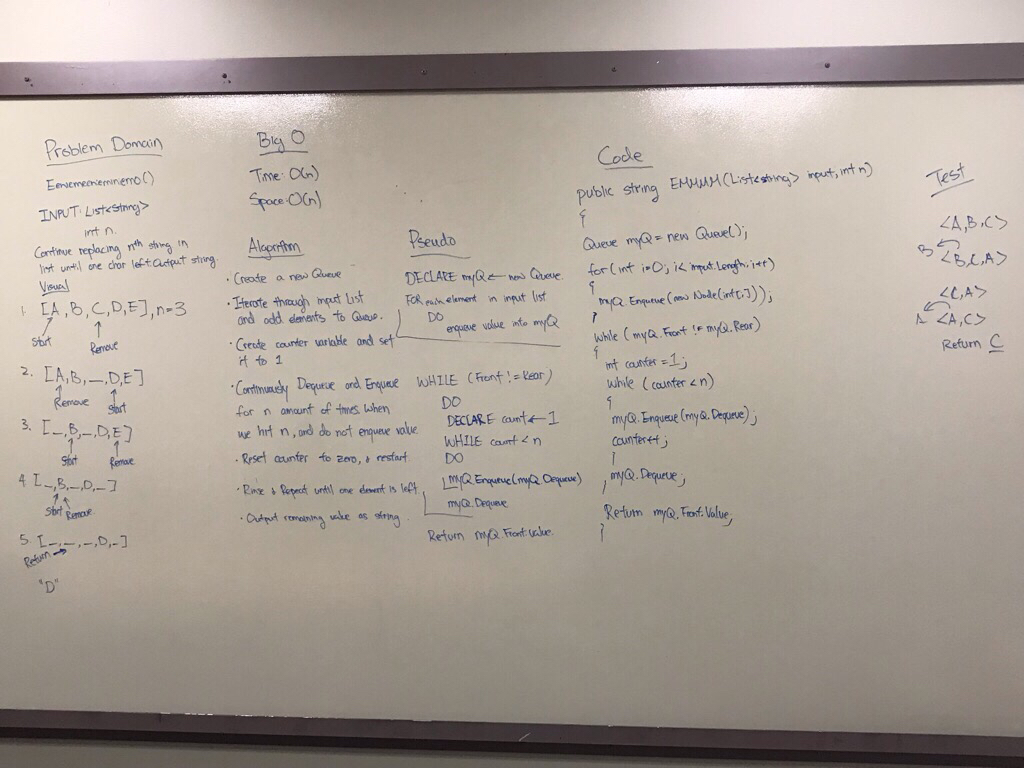 Problem Domain
Eeniemeenieminiemo()
INPUT: List<string>
int n.
Continue replacing nth string in
list until one char left. Output string.
Visual
1. [A, B, C, D, E], n=3
Start
Remove
2. [A, B, _, D, E]
Remove
Start
3. [_, B, _, D, E]
Start
Remove
4. [_, B, _, D, _]
Start
Remove
5. [_, _, _, D, _]
Return
"D"
Big O
Time: O(n)
Space: O(n)
Algorithm
• Create a new Queue
• Iterate through input List
and add elements to Queue.
• Create counter variable and set
it to 1
• Continuously Dequeue and Enqueue
for n amount of times. When
we hit n, and do not enqueue value
• Reset counter to zero, & restart
• Rinse & Repeat until one element is left
• Output remaining value as string
Pseudo
DECLARE myQ ← new Queue.
FOR each element in input list
DO
enqueue value into myQ
WHILE (Front != Rear)
DO
DECLARE count ← 1
WHILE count < n
DO
myQ Enqueue(myQ Dequeue)
myQ.Dequeue
Return myQ.Front.value.
Code
public string EMMM(List<string> input, int n)
{
Queue myQ = new Queue();
for (int i=0; i< input.Length; i++)
{
myQ.Enqueue(new Node(int[i]));
}
while (myQ.Front != myQ.Rear)
{
int counter = 1;
while (counter < n)
{
myQ.Enqueue(myQ.Dequeue);
counter++;
}
myQ.Dequeue;
}
Return myQ.Front.Value;
}
Test
<A, B, C>
B <B, C, A>
<C, A>
A <A, C>
Return C